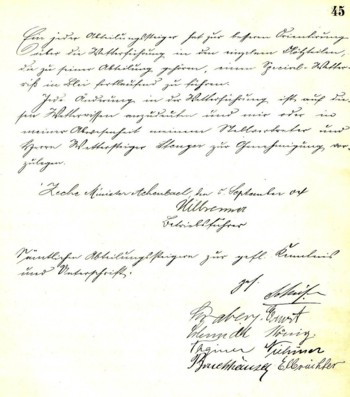 45
Ein jeder Abteilungssteiger hat zur bessern Orientierung
über die Wetterführung in den einzelnen Flözteilen,
die zu seiner Abteilung gehören, einen Spezial-Wetter-
riß in Blei fortlaufend zu führen.
Jede Änderung in der Wetterführung ist auf die-
sen Wetterrissen anzudeuten und mir oder in
meiner Abwesenheit meinem Stellvertreter und
Herrn Wettersteiger Stanger zur Genehmigung vor-
zulegen.
Zeche Minister Achenbach, den 5 September
Betriebsführer
Sämtlichen Abteilungssteigern zur gefl Kenntnis
und Unterschrift.
gez.
Ernst
Schmidt König
Wagner
Backhaus Elbrächter